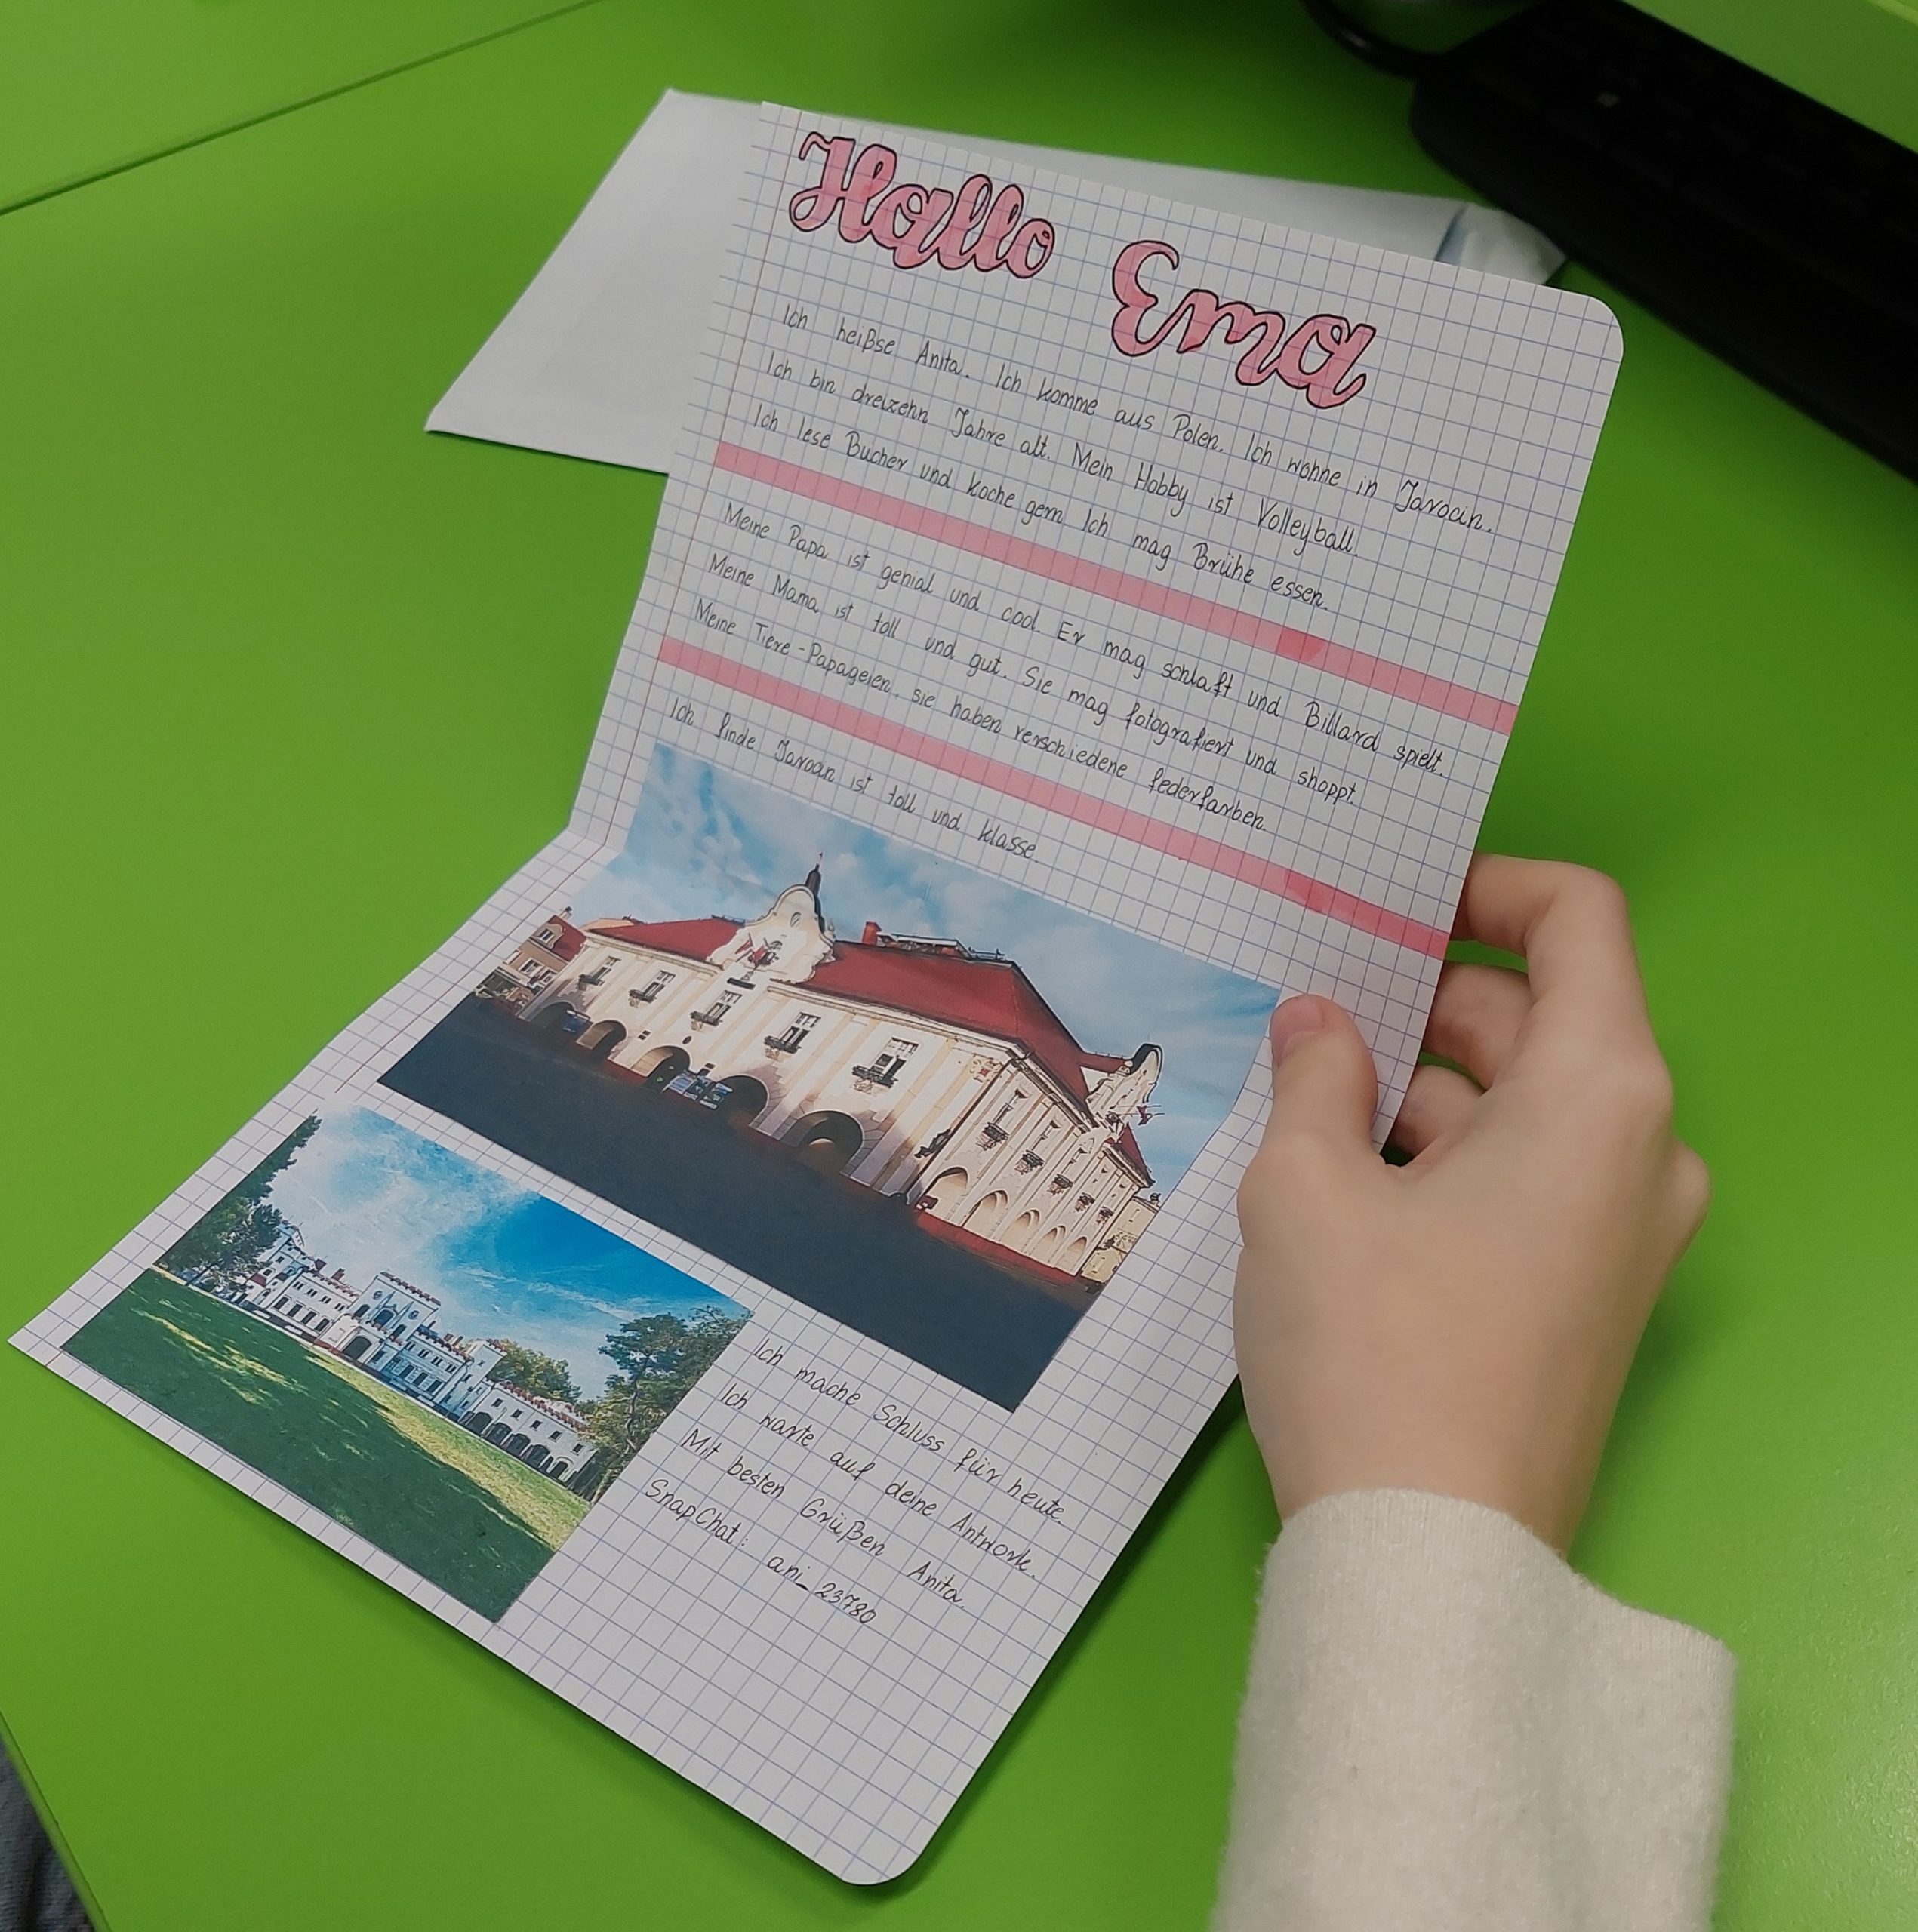 Hallo Ema
Ich heißse Anita. Ich komme aus Polen. Ich wohne in Jarocin.
Ich bin dreizehn Jahre alt. Mein Hobby ist Volleyball.
Ich lese Bucher und koche gern. Ich mag Brühe essen.
Meine Papa ist genial und cool. Er mag schlaft und Billard spielt.
Meine Mama ist toll und gut. Sie mag fotografiert und shoppt.
Meine Tiere - Papageien. sie haben verschiedene federfarben.
Ich finde Jarocin ist toll und klasse.
Ich mache Schluss für heute.
Ich warte auf deine Antwork.
Mit besten Grüßen Anita.
SnapChat: ani_23780